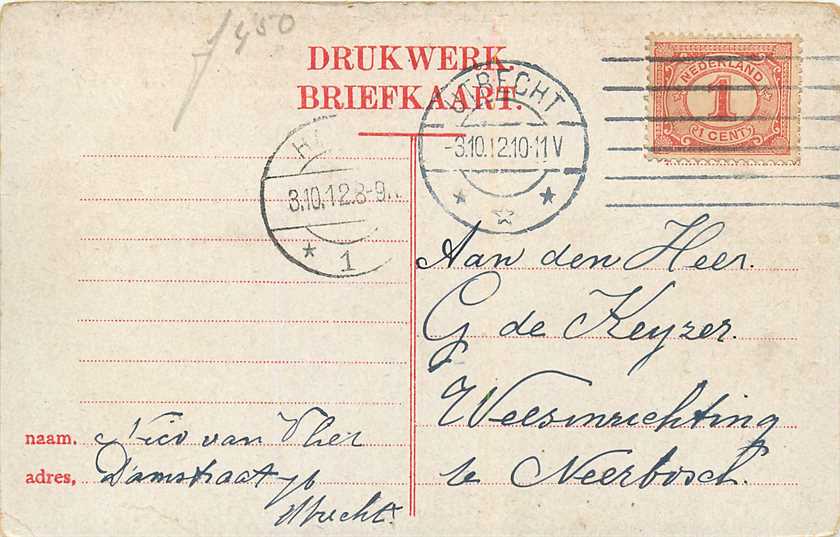 450
DRUKWERK.
BRIEFKAART.
NEDERLAND
1
1 CENT
UTRECHT
-3.10.12.10-11V
3.10.12.8-9
1
Aan den Heer.
G de Keyzer.
Weesinrichting
te Neerbosch.
naam. Nico van Vlier
adres, Damstraat
Utrecht.